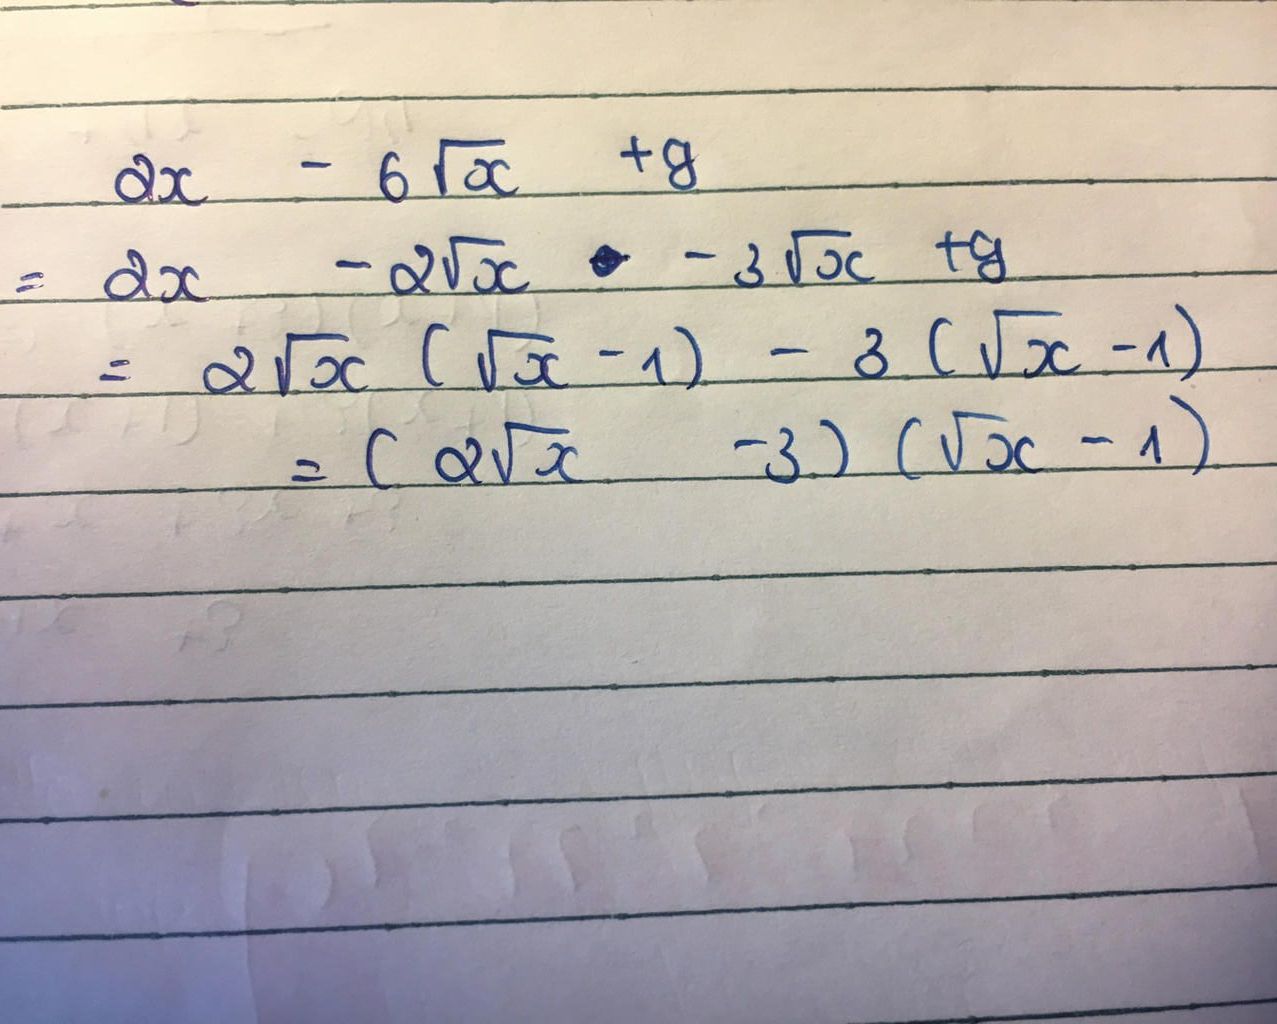 2x - 6√x + 9
= 2x - 2√x - 3√x + 9
= 2√x (√x - 1) - 3 (√x - 1)
= (2√x - 3) (√x - 1)